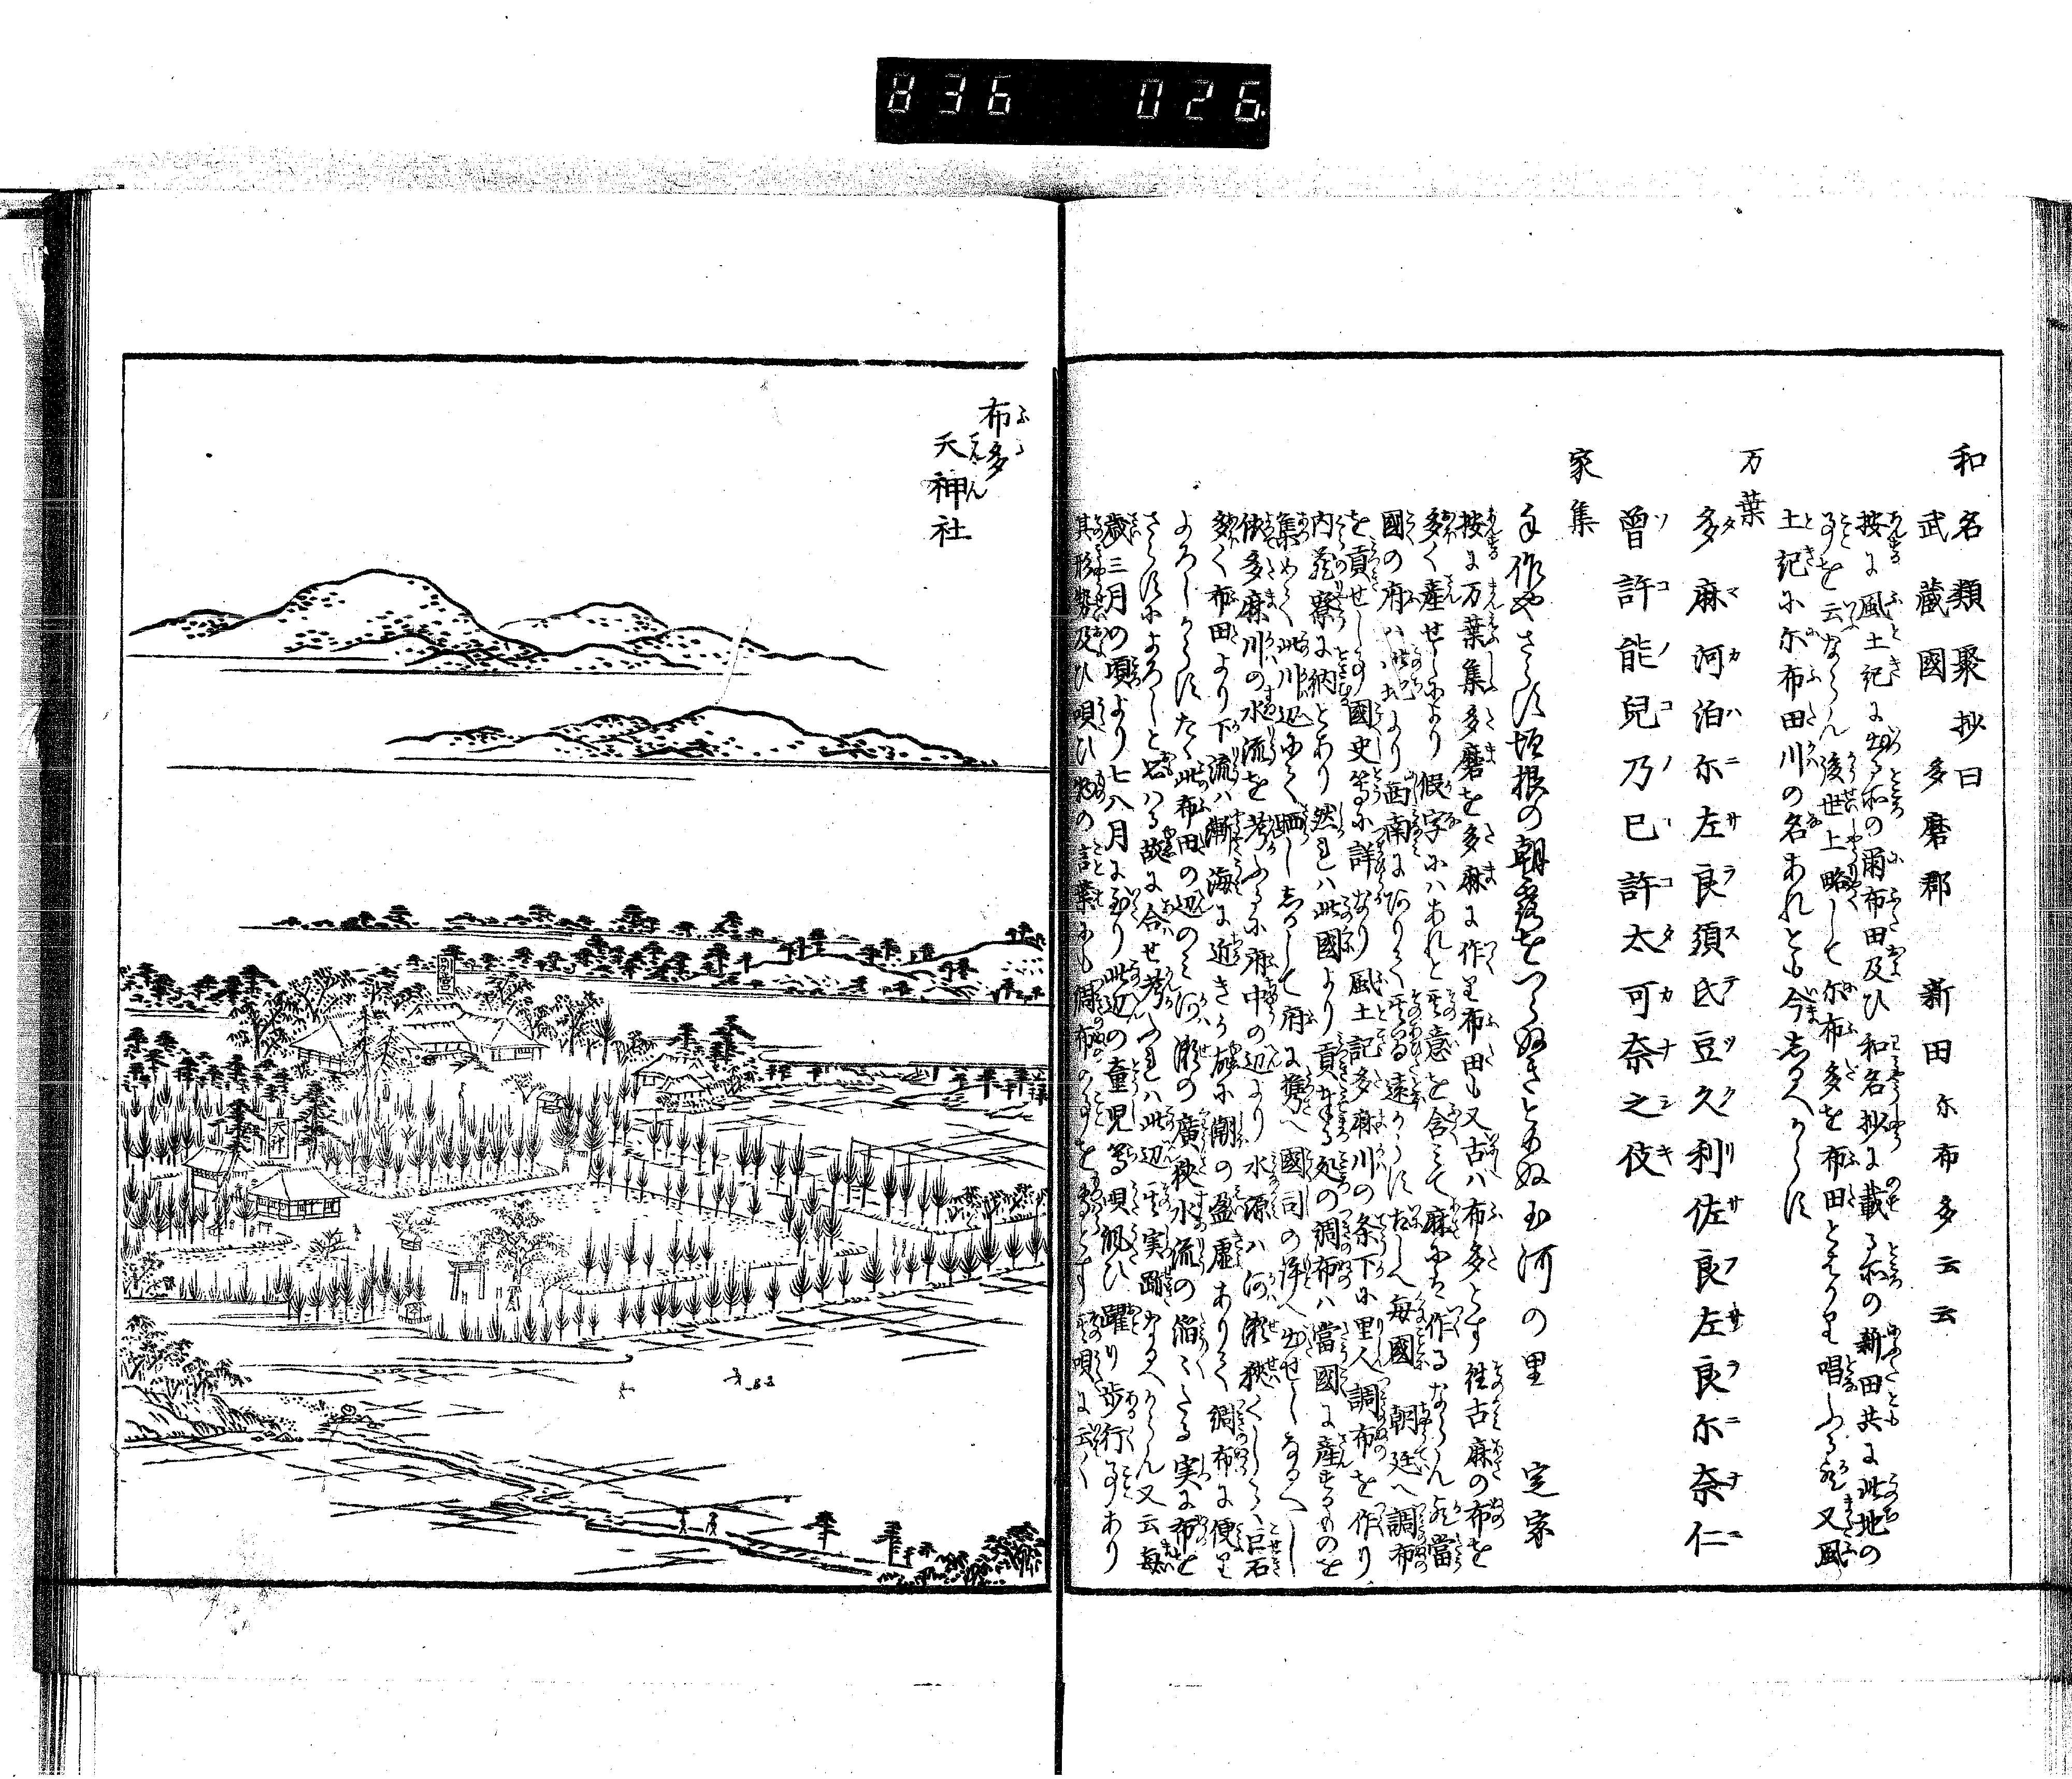 836 026
和名類聚抄曰
武藏國多磨郡 新田 尓布多云云
按に風土記に出る所の爾布田及ひ和名抄に載る所の新田共に此地の
事を云ならん後世上略して尓布多を布田とはかり唱ふる歟又風
土記に尓布田川の名あれとも今しるへからす
万葉
多麻河泊尓左良須氐豆久利佐良左良尓奈仁
曽許能兒乃巳許太可奈之伎
家集
手作やさらす垣根の朝露をつらぬきとめぬ玉河の里 定家
按に万葉集多磨を多麻に作り布田も又古ハ布多とす往古麻の布を
多く産せしにより假字にハあれと其意を含みて麻にも作るならん歟當
國の府ハ此地より西南にありて其間遠からす古しへ毎國朝廷へ調布
を貢せし事國史等に詳なり風土記多麻川の条下に里人調布を作り
内蔵寮に納とあり然れハ此國より貢する処の調布ハ當國に産するものを
集めて此川辺にて晒ししかして府に携へ國司の許へ出せしなるへし
依多麻川の水流を考ふるに府中の辺より水源ハ河瀬狭くしてハ巨石
多く布田より下流ハ漸海に近きか故に潮の盈虚ありて調布に便り
よろしからすたゝ此布田の辺のミ河瀬の廣狭水流の滔々たる実に布を
さらすによろしと云ハる故に合せ考ふれハ此辺其実跡なるへからん又云毎
歳三月の頃より七八月に至り此辺の童児等唄ひ躍り歩行事あり
其形勢及ひ唄ひ物の言葉にも調布のことをもとす其唄に云く
布多
天神社
別當
天神